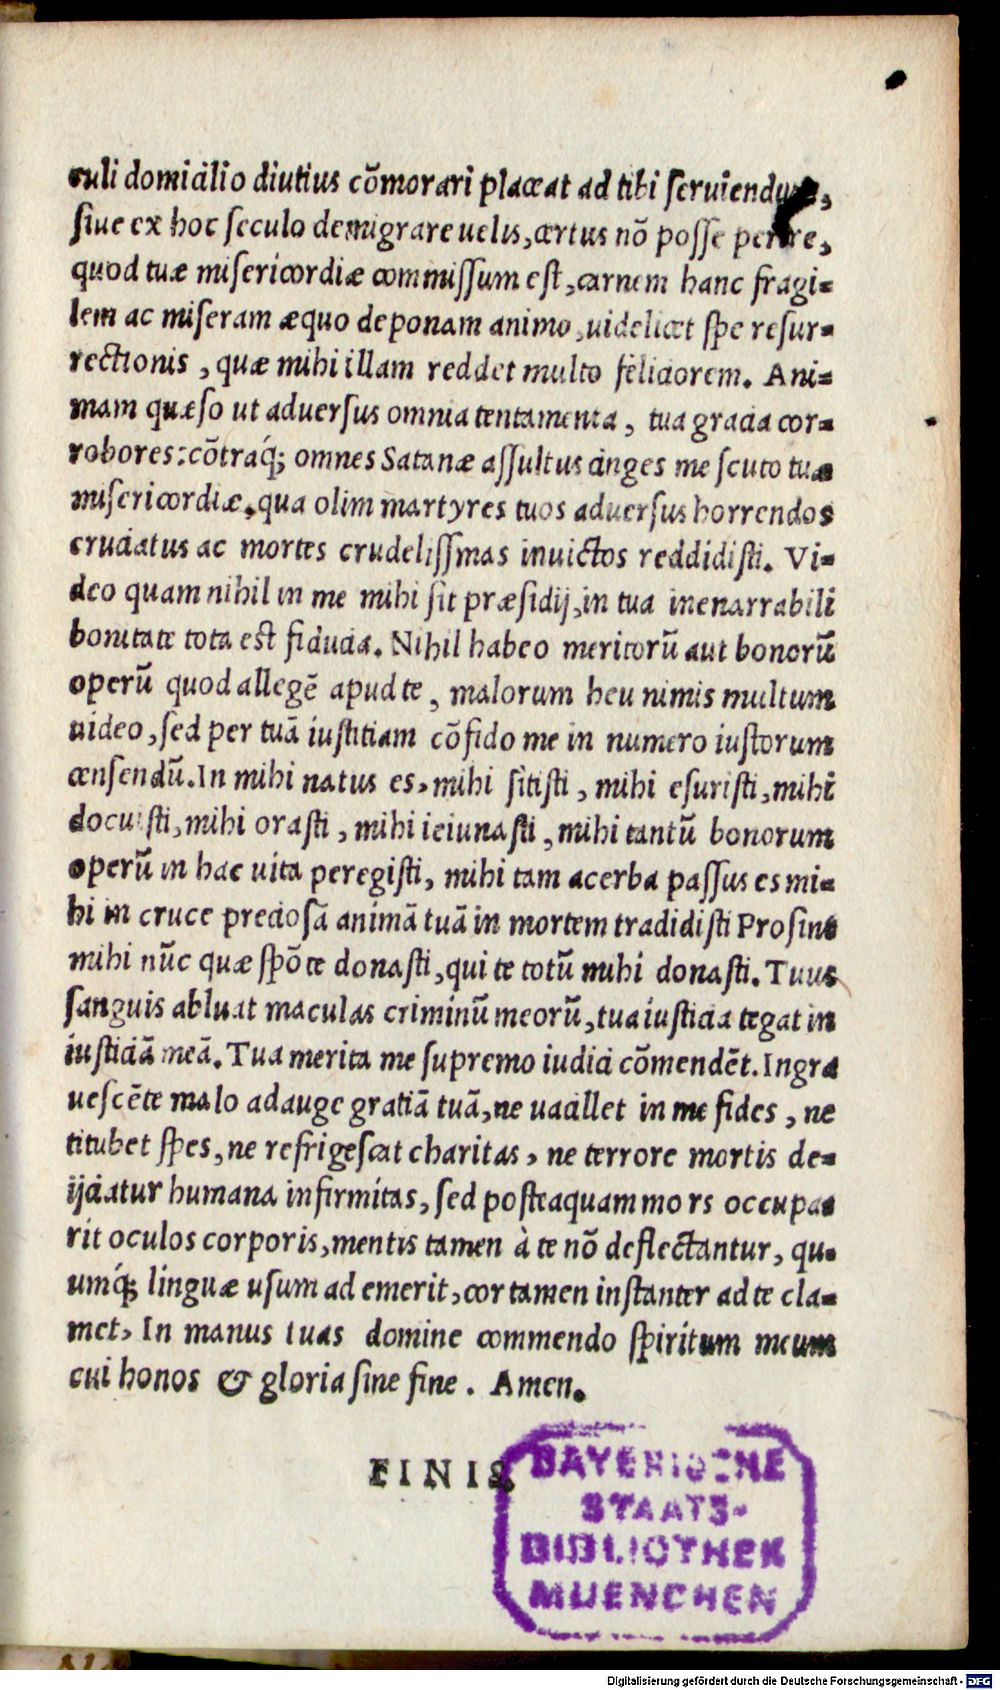 culi domicilio diutius cōmorari placeat ad tibi seruiendum,
siue ex hoc seculo demigrare uelis, certus nō posse perire,
quod tuæ misericordiæ commissum est, carnem hanc fragi=
lem ac miseram æquo deponam animo, uidelicet spe resur=
rectionis, quæ mihi illam reddet multo feliciorem. Ani=
mam quæso ut aduersus omnia tentamenta, tua gracia cor=
robores: cōtraq́; omnes Satanæ assultus cinges me scuto tuæ
misericordiæ, qua olim martyres tuos aduersus horrendos
cruciatus ac mortes crudelissmas inuictos reddidisti. Vi=
deo quam nihil in me mihi sit præsidij, in tua inenarrabili
bonitate tota est fiducia. Nihil habeo meritorū aut bonorū
operū quod allegē apud te, malorum heu nimis multum
uideo, sed per tuā iustitiam cōfido me in numero iustorum
censendū. In mihi natus es, mihi sitisti, mihi esuristi, mihi
docuisti, mihi orasti, mihi ieiunasti, mihi tantū bonorum
operū in hac uita peregisti, mihi tam acerba passus es mi=
hi in cruce preciosā animā tuā in mortem tradidisti Prosint
mihi nūc quæ spōte donasti, qui te totū mihi donasti. Tuus
sanguis abluat maculas criminū meorū, tua iusticia tegat in
iusticiā meā. Tua merita me supremo iudici cōmendēt. Ingra
uescēte malo adauge gratiā tuā, ne uacillet in me fides, ne
titubet spes, ne refrigescat charitas, ne terrore mortis de=
ijciatur humana infirmitas, sed posteaquam mors occupa=
rit oculos corporis, mentis tamen à te nō deflectantur, qu=
umq́; linguæ usum ademerit, cor tamen instanter ad te cla=
met, In manus tuas domine commendo spiritum meum
cui honos & gloria sine fine. Amen.
FINIS
BAYERISCHE
STAATS-
BIBLIOTHEK
MUENCHEN
Digitalisierung gefördert durch die Deutsche Forschungsgemeinschaft - DFG